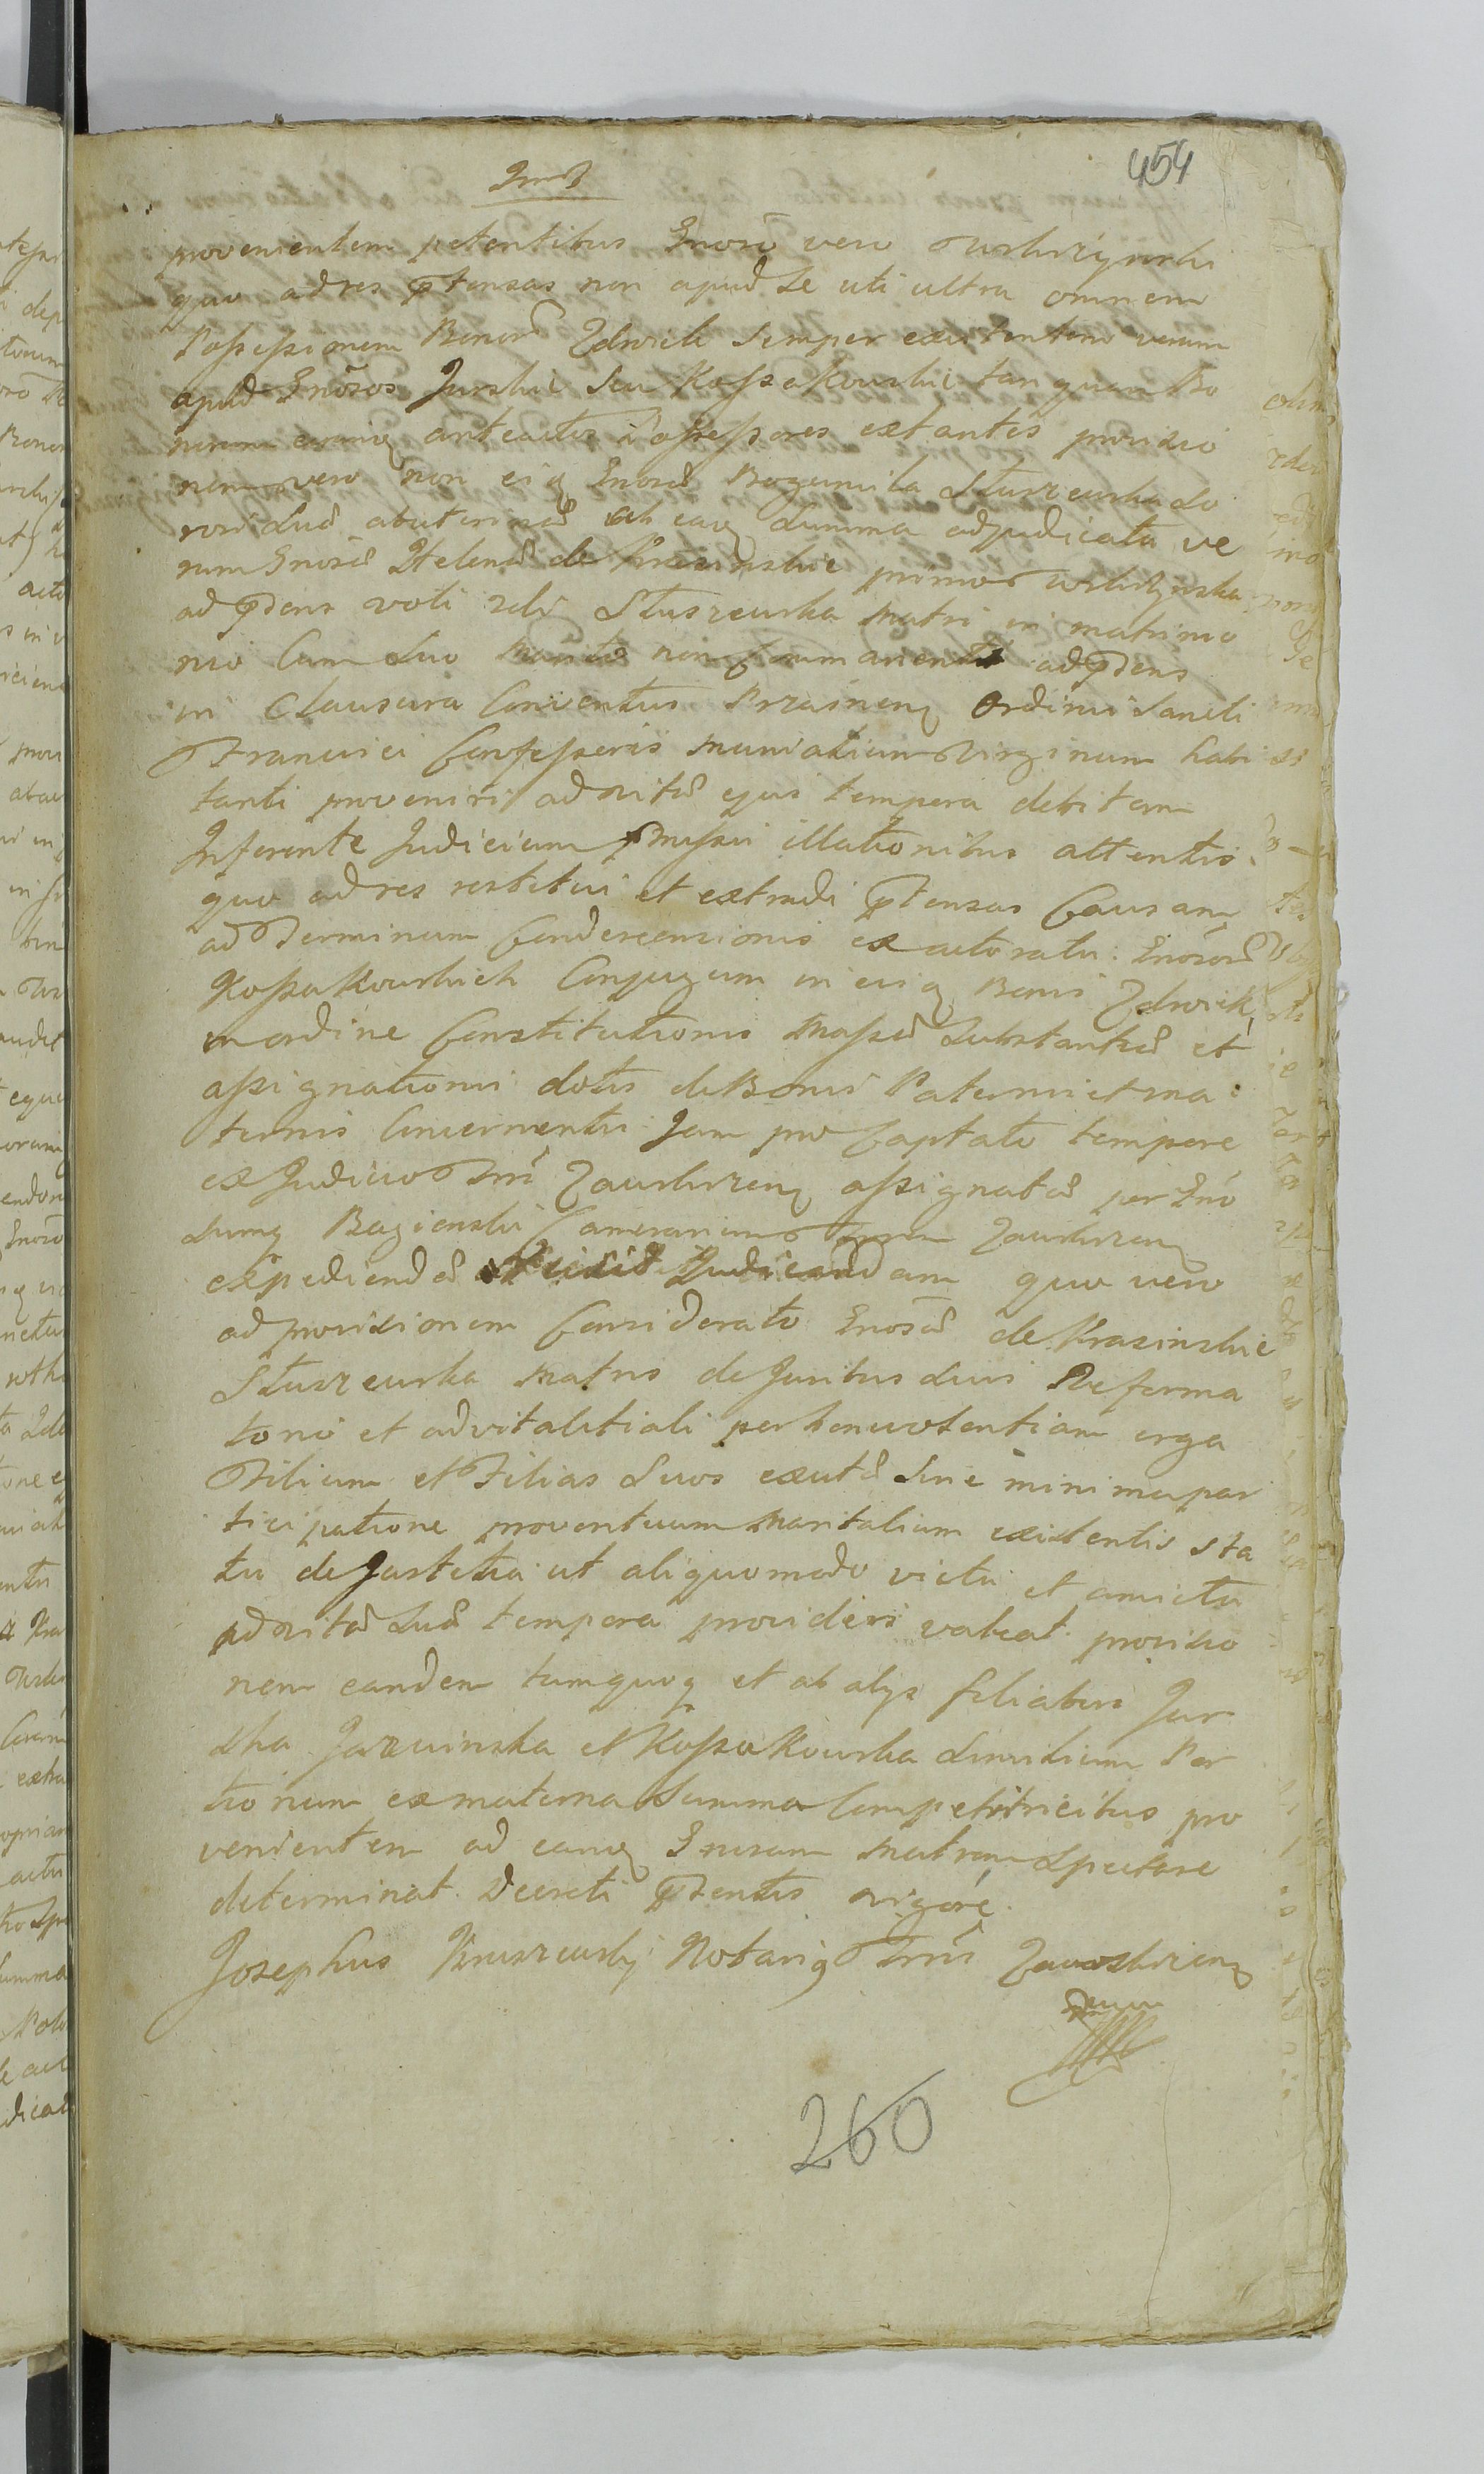 454
provenientem petentibus Gnoso vero
quo ad res ptensas non apud se uti ultra omnem
Possessionem Bonor Zdwiek semper existentem verum
apud Gnosos Jurskie seu Kossakowskie tanquam Bo
norum eorumq anteactos Possessores extantes provisio
nem vero non eiq Gnosae Bogumila Stuszewska So
rori suae abuterinae ab eaq summa adjudicata ve
rum Gnosae Helenae de Krasinskie primo
ad pdens voti Stuszewska Matri in matrimo
nio Cum suo Marito non ad pdens
in Clausura Conventus Prasneq Ordinis Sancti
Francisci Confessoris Monialium Virginum habi
tanti proveniri ad vitae ejus tempora debitam
Inferente Judicium pmissis illationibus attentis
quo ad res restitui et extradi ptensas Causam
ad Terminum Condescensionis ex actoratu Gnosor
Kossakowskich Conjugum in eisq Bonis Zdwiek
in ordine Constitutionis Massae Substantiae et
assignationis dotis de Bonis Paternis et ma:
ternis Concernentis Jam pro Captato tempore
ex Judicio Tri Zawskrzeq assignatae per Gno
sumq Bagienski Camerarium Zawskrzeq
expediendae Judicandam quo vero
ad provisionem Considerato Gnosae de Krasinskie
Stuszewska Matris de Juribus suis Reforma
torio et advitalitiali per benevolentiam erga
Filium et Filias suos exutae sine minima par
ticipatione proventuum Maritalium existentis sta
tu de Justitia ut aliquo modo victu et amictu
ad vitae suae tempora provideri valeat provisio
nem eandem tumquoq et ab alys filiabus Jur
ska Jazwinska et Kossakowska dimidium Por
tionum ex materna Summa Competitricibus pro
venientem ad eamq Gnosam Matrem spectare
determinat Decreti pdentis vigore.
Josephus Kruszewsky Notariq Tris Zawskrzenq
260